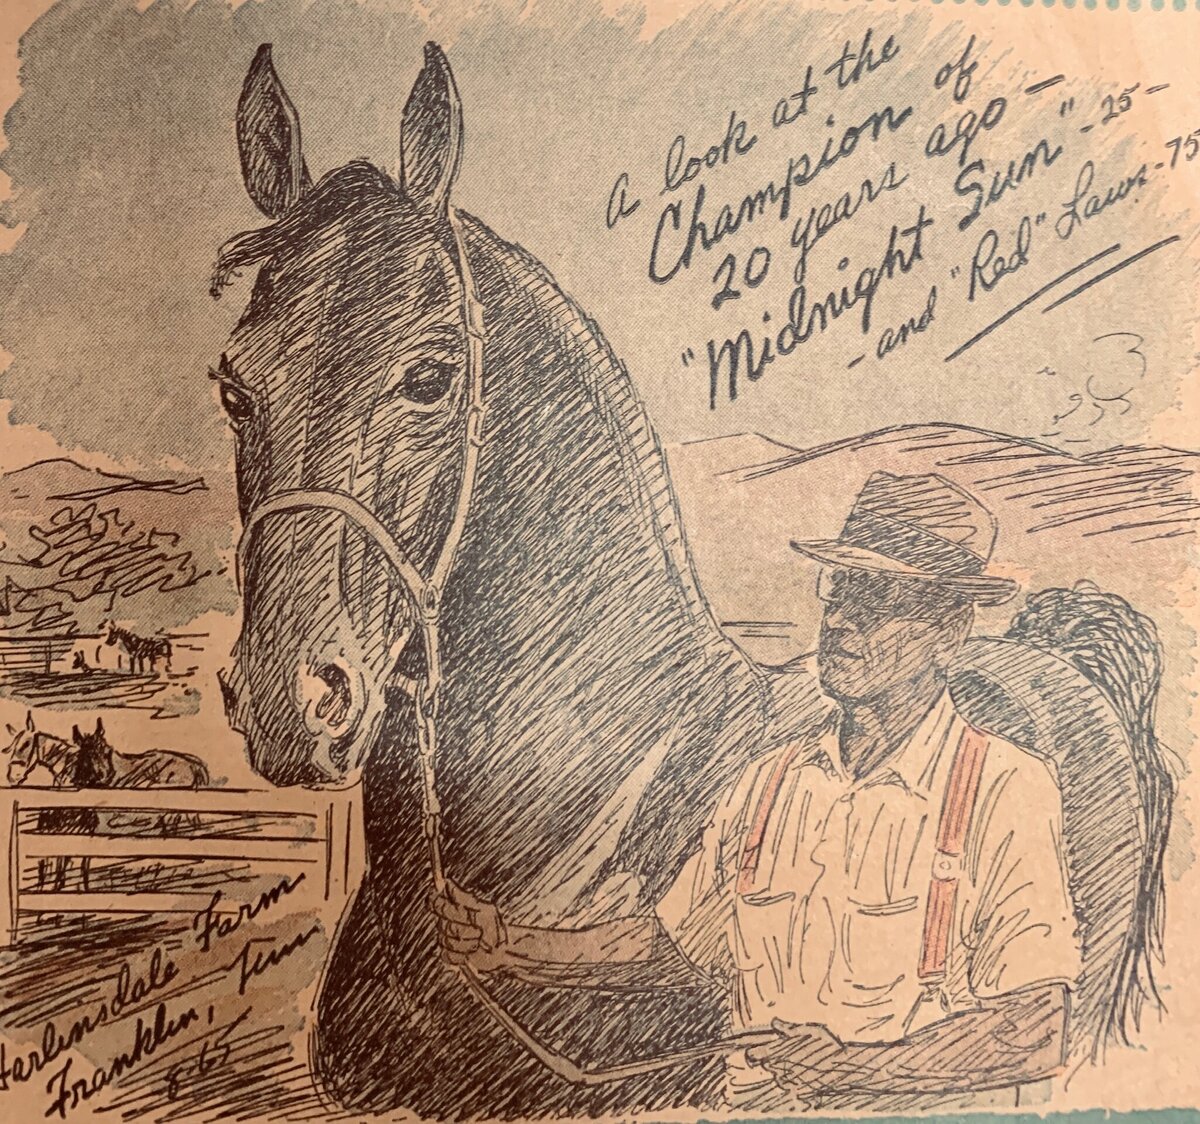 A look at the
Champion of
20 years ago -
"Midnight Sun" - 25 -
- and "Red" Laws - 75
Harlinsdale Farm
Franklin, Tenn
8-65